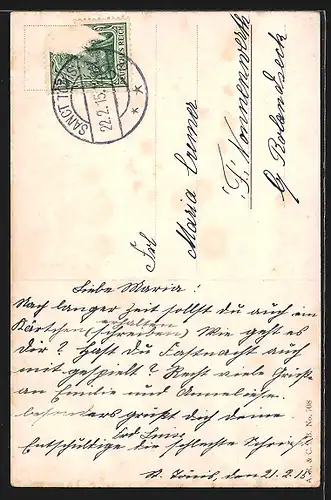 SANCT TÖNIS
22.2.15.
DEUTSCHES REICH
Frl
Maria Cremer
P. Nonnenwerth
b/ Rolandseck
Liebe Maria!
Nach langer Zeit sollst du auch ein
Kärtchen (schreiben) erhalten Wie geht es
Dir? Hast du Fastnacht auch
mit gespielt? Recht viele Grüße
an Emilie und Anneliese.
besonders grüßt dich deine
Entschuldige die schlechte Schrift
St. Tönis, den 21.2.15
A. R. & C. i. B. No. 708